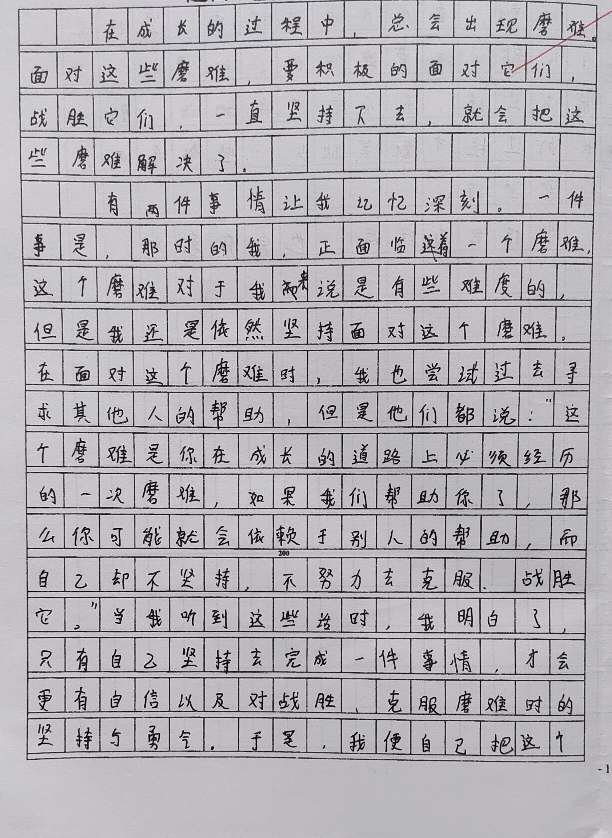 在成长的过程中，总会出现磨难。
面对这些磨难，要积极的面对它们，
战胜它们，一直坚持下去，就会把这
些磨难解决了。
有两件事情让我记忆深刻。一件
事是，那时的我，正面临着一个磨难，
这个磨难对于我来说是有些难度的，
但是我还是依然坚持面对这个磨难。
在面对这个磨难时，我也尝试过去寻
求其他人的帮助，但是他们都说："这
个磨难是你在成长的道路上必须经历
的一次磨难，如果我们帮助你了，那
么你可能就会依赖于别人的帮助，而
200
自己却不坚持，不努力去克服、战胜
它。"当我听到这些话时，我明白了，
只有自己坚持去完成一件事情，才会
更有自信以及对战胜、克服磨难时的
坚持与勇气。于是，我便自己把这个
- 1